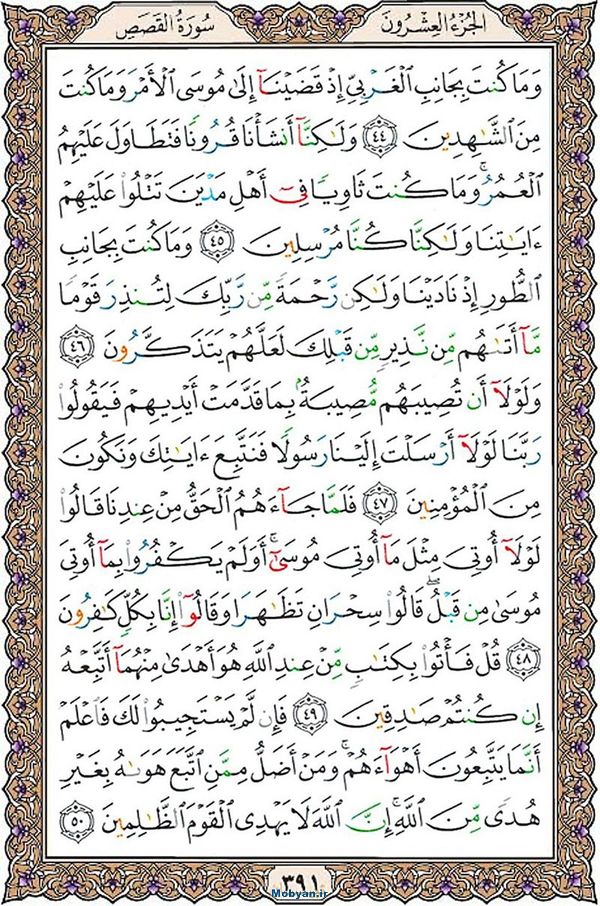 سُورَةُ القَصَصِ
الجُزْءُ العِشْرُونَ
وَمَا كُنتَ بِجَانِبِ ٱلْغَرْبِىِّ إِذْ قَضَيْنَآ إِلَىٰ مُوسَى ٱلْأَمْرَ وَمَا كُنتَ
مِنَ ٱلشَّٰهِدِينَ ٤٤ وَلَٰكِنَّآ أَنشَأْنَا قُرُونًا فَتَطَاوَلَ عَلَيْهِمُ
ٱلْعُمُرُ ۚ وَمَا كُنتَ ثَاوِيًا فِىٓ أَهْلِ مَدْيَنَ تَتْلُوا۟ عَلَيْهِمْ
ءَايَٰتِنَا وَلَٰكِنَّا كُنَّا مُرْسِلِينَ ٤٥ وَمَا كُنتَ بِجَانِبِ
ٱلطُّورِ إِذْ نَادَيْنَا وَلَٰكِن رَّحْمَةً مِّن رَّبِّكَ لِتُنذِرَ قَوْمًا
مَّآ أَتَىٰهُم مِّن نَّذِيرٍ مِّن قَبْلِكَ لَعَلَّهُمْ يَتَذَكَّرُونَ ٤٦
وَلَوْلَآ أَن تُصِيبَهُم مُّصِيبَةٌۢ بِمَا قَدَّمَتْ أَيْدِيهِمْ فَيَقُولُوا۟
رَبَّنَا لَوْلَآ أَرْسَلْتَ إِلَيْنَا رَسُولًا فَنَتَّبِعَ ءَايَٰتِكَ وَنَكُونَ
مِنَ ٱلْمُؤْمِنِينَ ٤٧ فَلَمَّا جَآءَهُمُ ٱلْحَقُّ مِنْ عِندِنَا قَالُوا۟
لَوْلَآ أُوتِىَ مِثْلَ مَآ أُوتِىَ مُوسَىٰٓ ۚ أَوَلَمْ يَكْفُرُوا۟ بِمَآ أُوتِىَ
مُوسَىٰ مِن قَبْلُ ۖ قَالُوا۟ سِحْرَانِ تَظَٰهَرَا وَقَالُوٓا۟ إِنَّا بِكُلٍّ كَٰفِرُونَ
٤٨ قُلْ فَأْتُوا۟ بِكِتَٰبٍ مِّنْ عِندِ ٱللَّهِ هُوَ أَهْدَىٰ مِنْهُمَآ أَتَّبِعْهُ
إِن كُنتُمْ صَٰدِقِينَ ٤٩ فَإِن لَّمْ يَسْتَجِيبُوا۟ لَكَ فَٱعْلَمْ
أَنَّمَا يَتَّبِعُونَ أَهْوَآءَهُمْ ۚ وَمَنْ أَضَلُّ مِمَّنِ ٱتَّبَعَ هَوَىٰهُ بِغَيْرِ
هُدًى مِّنَ ٱللَّهِ ۚ إِنَّ ٱللَّهَ لَا يَهْدِى ٱلْقَوْمَ ٱلظَّٰلِمِينَ ٥٠
٣٩١
Mobyan.ir